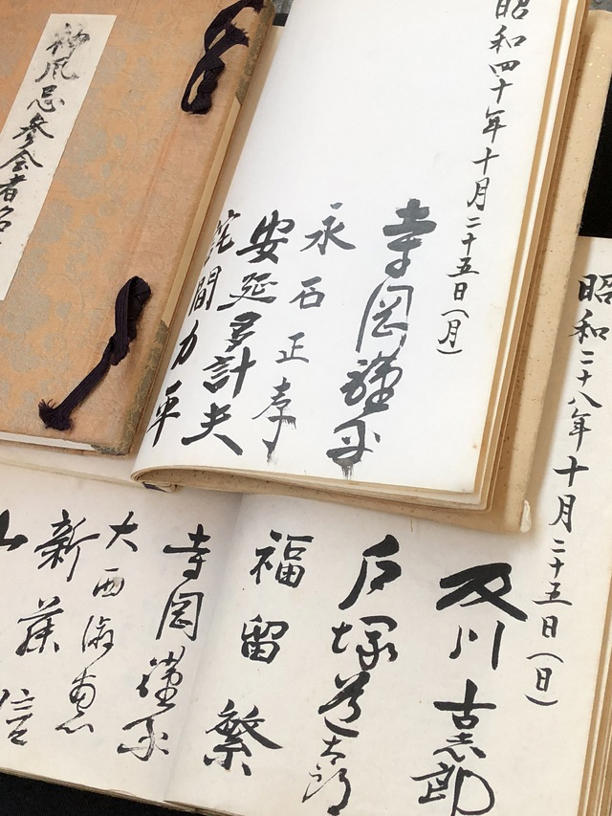 神風忌参会者名
昭和四十年十月二十五日(月)
寺岡謹平
永石正孝
安延多計夫
間力平
昭和二十八年十月二十五日(日)
及川古志郎
戸塚道太郎
福留繁
寺岡謹平
大西淑恵
新藤信
山